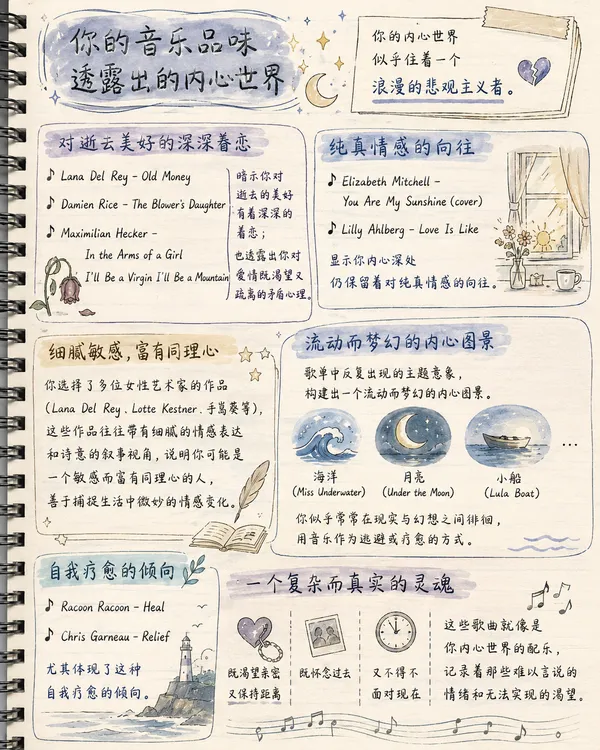 你的音乐品味
透露出的内心世界
你的内心世界
似乎住着一个
浪漫的悲观主义者。
对逝去美好的深深眷恋
♪ Lana Del Rey – Old Money
♪ Damien Rice – The Blower's Daughter
♪ Maximilian Hecker –
In the Arms of a Girl
I'll Be a Virgin I'll Be a Mountain
暗示你对
逝去的美好
有着深深的
眷恋；
也透露出你对
爱情既渴望又
疏离的矛盾心理。
纯真情感的向往
♪ Elizabeth Mitchell –
You Are My Sunshine (cover)
♪ Lilly Ahlberg – Love Is Like
显示你内心深处
仍保留着对纯真情感的向往。
细腻敏感，富有同理心
你选择了多位女性艺术家的作品
(Lana Del Rey、Lotte Kestner、手嶌葵等)，
这些作品往往带有细腻的情感表达
和诗意的叙事视角，说明你可能是
一个敏感而富有同理心的人，
善于捕捉生活中微妙的情感变化。
流动而梦幻的内心图景
歌单中反复出现的主题意象，
构建出一个流动而梦幻的内心图景。
海洋
(Miss Underwater)
月亮
(Under the Moon)
小船
(Lula Boat)
...
你似乎常常在现实与幻想之间徘徊，
用音乐作为逃避或疗愈的方式。
自我疗愈的倾向
♪ Racoon Racoon – Heal
♪ Chris Garneau – Relief
尤其体现了这种
自我疗愈的倾向。
一个复杂而真实的灵魂
既渴望亲密
又保持距离
既怀念过去
又不得不
面对现在
这些歌曲就像是
你内心世界的配乐，
记录着那些难以言说的
情绪和无法实现的渴望。